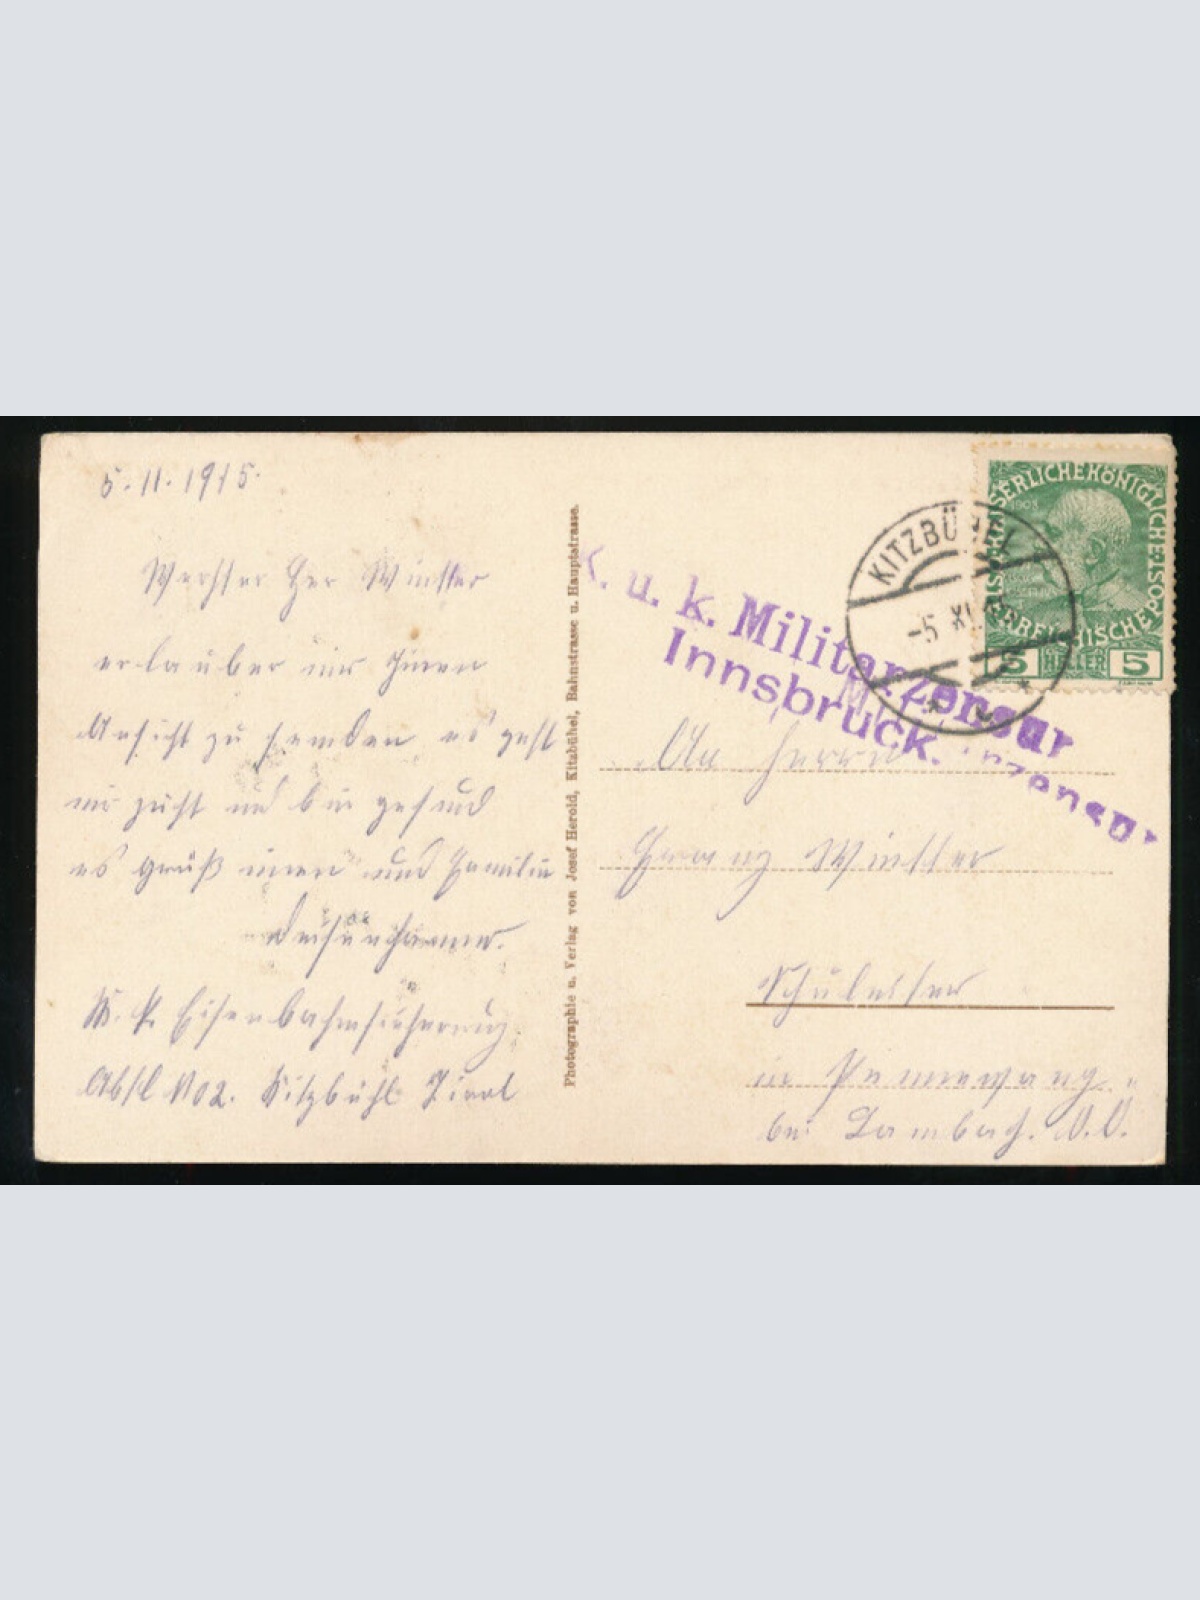 5.11.1915.
Werhter Her Winkler
erlauber mir Ihnen
Ansicht zu senden es geht
mir gucht und bin gesund
es grüß inen und Familie
K. k. Eisenbahnsicherung
Abtl No 2. Kitzbühl Tirol
Photographie u. Verlag von Josef Herold, Kitzbühel, Bahnstrasse u. Hauptstrasse.
K. u. k. Militärzensur
Innsbruck.
KITZBÜHEL
-5 XI
KAISERLICHE KÖNIGLICHE ÖSTERREICHISCHE POST
1908
5 HELLER 5
An Herrn
Franz
in
bei Lambach. O.Ö.